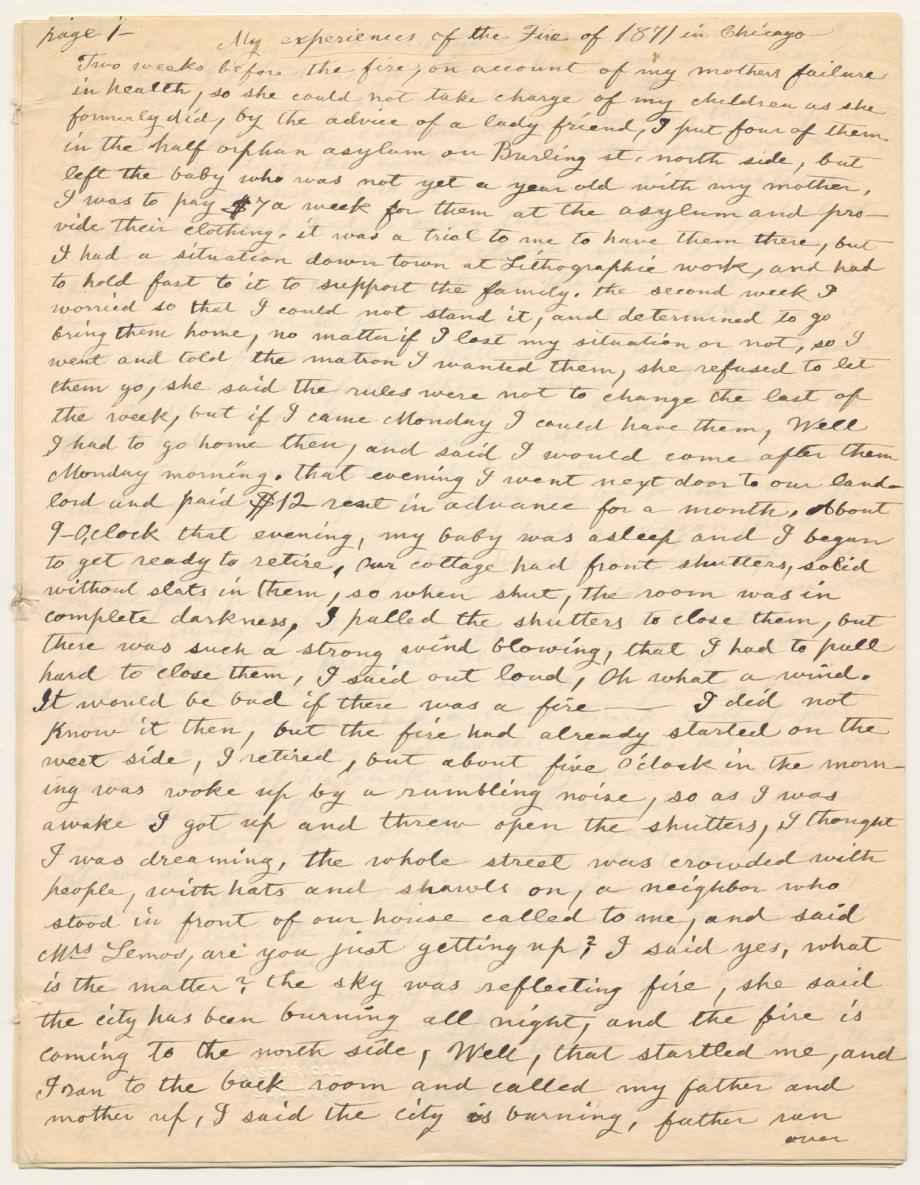 page 1-
My experiences of the Fire of 1871 in Chicago
Two weeks before the fire, on account of my mothers failure
in health, so she could not take charge of my children as she
formerly did, by the advice of a lady friend, I put four of them
in the half orphan asylum on Burling st. north side, but
left the baby who was not yet a year old with my mother,
I was to pay $7 a week for them at the asylum and pro-
vide their clothing. it was a trial to me to have them there, but
I had a situation down town at Lithographic work, and had
to hold fast to it to support the family. the second week I
worried so that I could not stand it, and determined to go
bring them home, no matter if I lost my situation or not, so I
went and told the matron I wanted them, she refused to let
them go, she said the rules were not to change the last of
the week, but if I came Monday I could have them, Well
I had to go home then, and said I would come after them
Monday morning. that evening I went next door to our land-
lord and paid $12 rent in advance for a month. About
9-O,clock that evening, my baby was asleep and I began
to get ready to retire, Our cottage had front shutters, solid
without slats in them, so when shut, the room was in
complete darkness, I pulled the shutters to close them, but
there was such a strong wind blowing, that I had to pull
hard to close them, I said out loud, Oh what a wind.
It would be bad if there was a fire — — I did not
Know it then, but the fire had already started on the
west side, I retired, but about five O'clock in the morn-
ing was woke up by a rumbling noise, so as I was
awake I got up and threw open the shutters, I thought
I was dreaming, the whole street was crowded with
people, with hats and shawls on, a neighbor who
stood in front of our house called to me, and said
Mrs Lemos, are you just getting up? I said yes, what
is the matter? the sky was reflecting fire, she said
the city has been burning all night, and the fire is
coming to the north side, Well, that startled me, and
I ran to the back room and called my father and
mother up, I said the city is burning, father ran
over